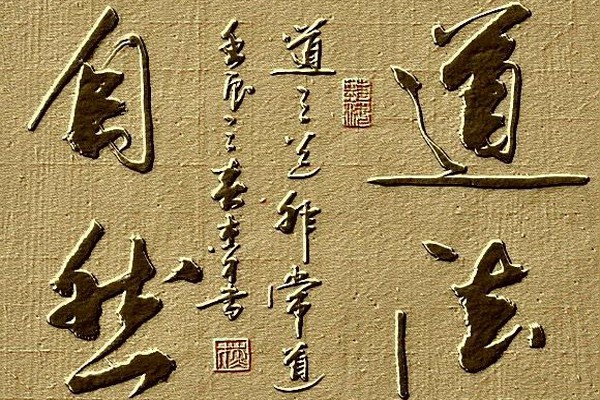 道法
道可道非常道
壬辰之春书
自然